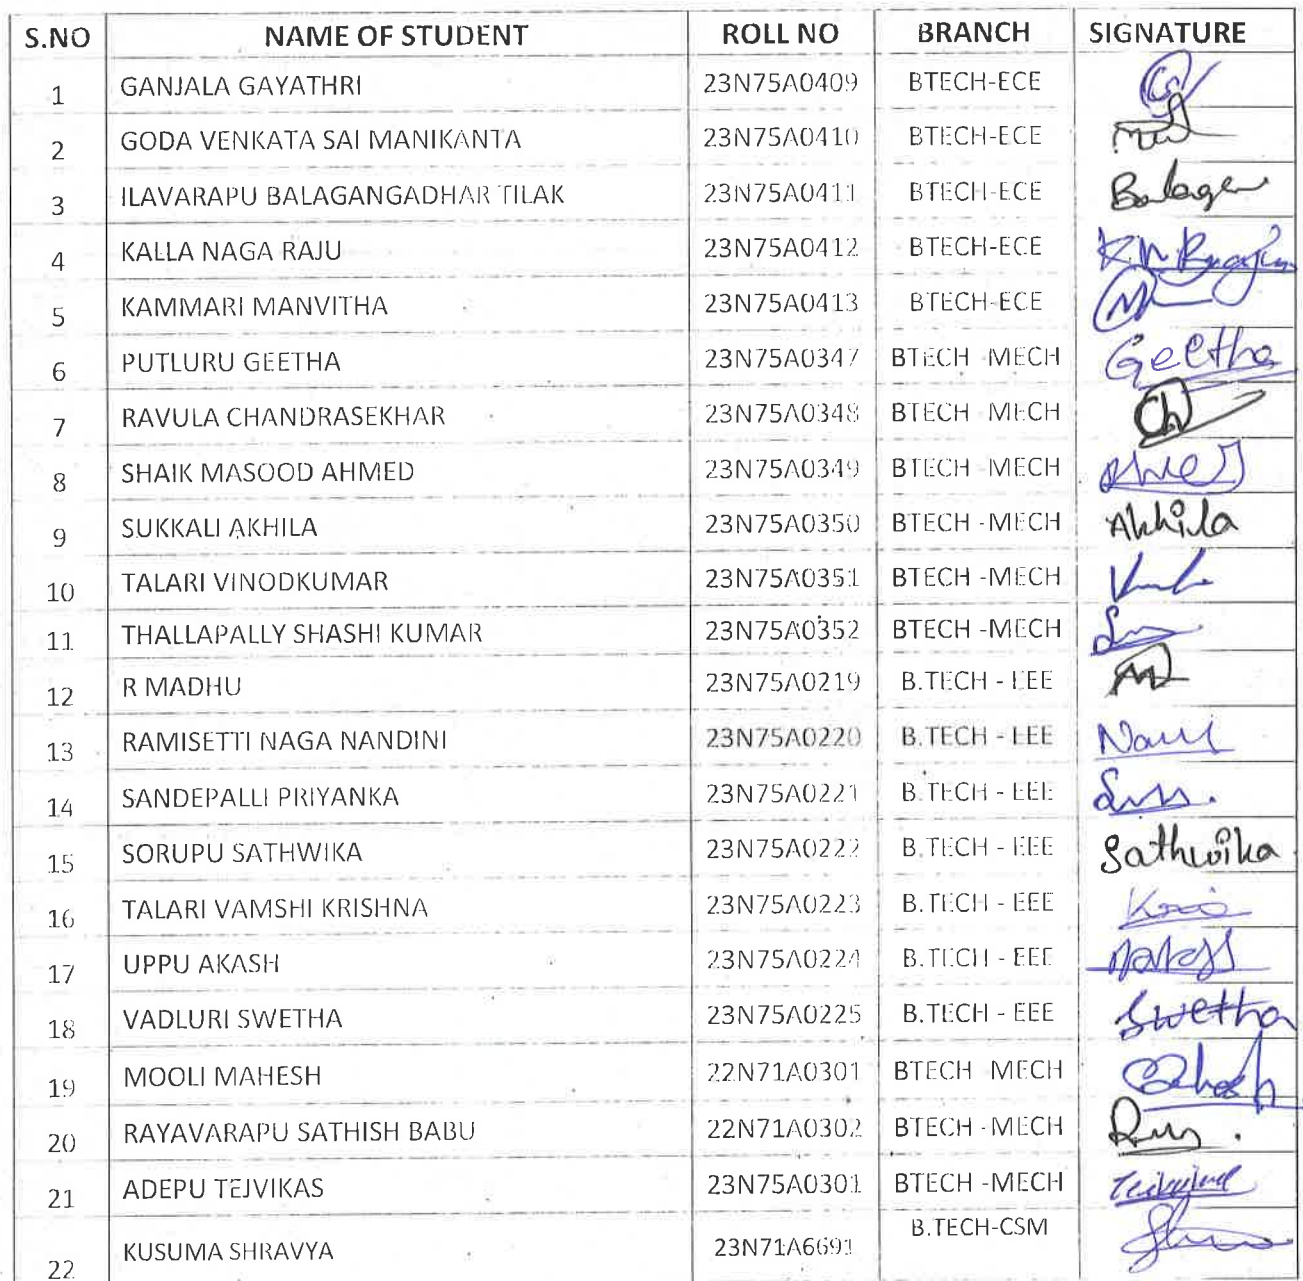 S.NO NAME OF STUDENT ROLL NO BRANCH SIGNATURE
1 GANJALA GAYATHRI 23N75A0409 BTECH-ECE
2 GODA VENKATA SAI MANIKANTA 23N75A0410 BTECH-ECE
3 ILAVARAPU BALAGANGADHAR TILAK 23N75A0411 BTECH-ECE
4 KALLA NAGA RAJU 23N75A0412 BTECH-ECE
5 KAMMARI MANVITHA 23N75A0413 BTECH-ECE
6 PUTLURU GEETHA 23N75A0347 BTECH -MECH Geetha
7 RAVULA CHANDRASEKHAR 23N75A0348 BTECH -MECH
8 SHAIK MASOOD AHMED 23N75A0349 BTECH -MECH
9 SUKKALI AKHILA 23N75A0350 BTECH -MECH Akhila
10 TALARI VINODKUMAR 23N75A0351 BTECH -MECH
11 THALLAPALLY SHASHI KUMAR 23N75A0352 BTECH -MECH
12 R MADHU 23N75A0219 B.TECH - EEE
13 RAMISETTI NAGA NANDINI 23N75A0220 B.TECH - EEE
14 SANDEPALLI PRIYANKA 23N75A0221 B.TECH - EEE
15 SORUPU SATHWIKA 23N75A0222 B.TECH - EEE Sathwika
16 TALARI VAMSHI KRISHNA 23N75A0223 B.TECH - EEE
17 UPPU AKASH 23N75A0224 B.TECH - EEE
18 VADLURI SWETHA 23N75A0225 B.TECH - EEE Swetha
19 MOOLI MAHESH 22N71A0301 BTECH -MECH
20 RAYAVARAPU SATHISH BABU 22N71A0302 BTECH -MECH
21 ADEPU TEJVIKAS 23N75A0301 BTECH -MECH
22 KUSUMA SHRAVYA 23N71A6691 B.TECH-CSM